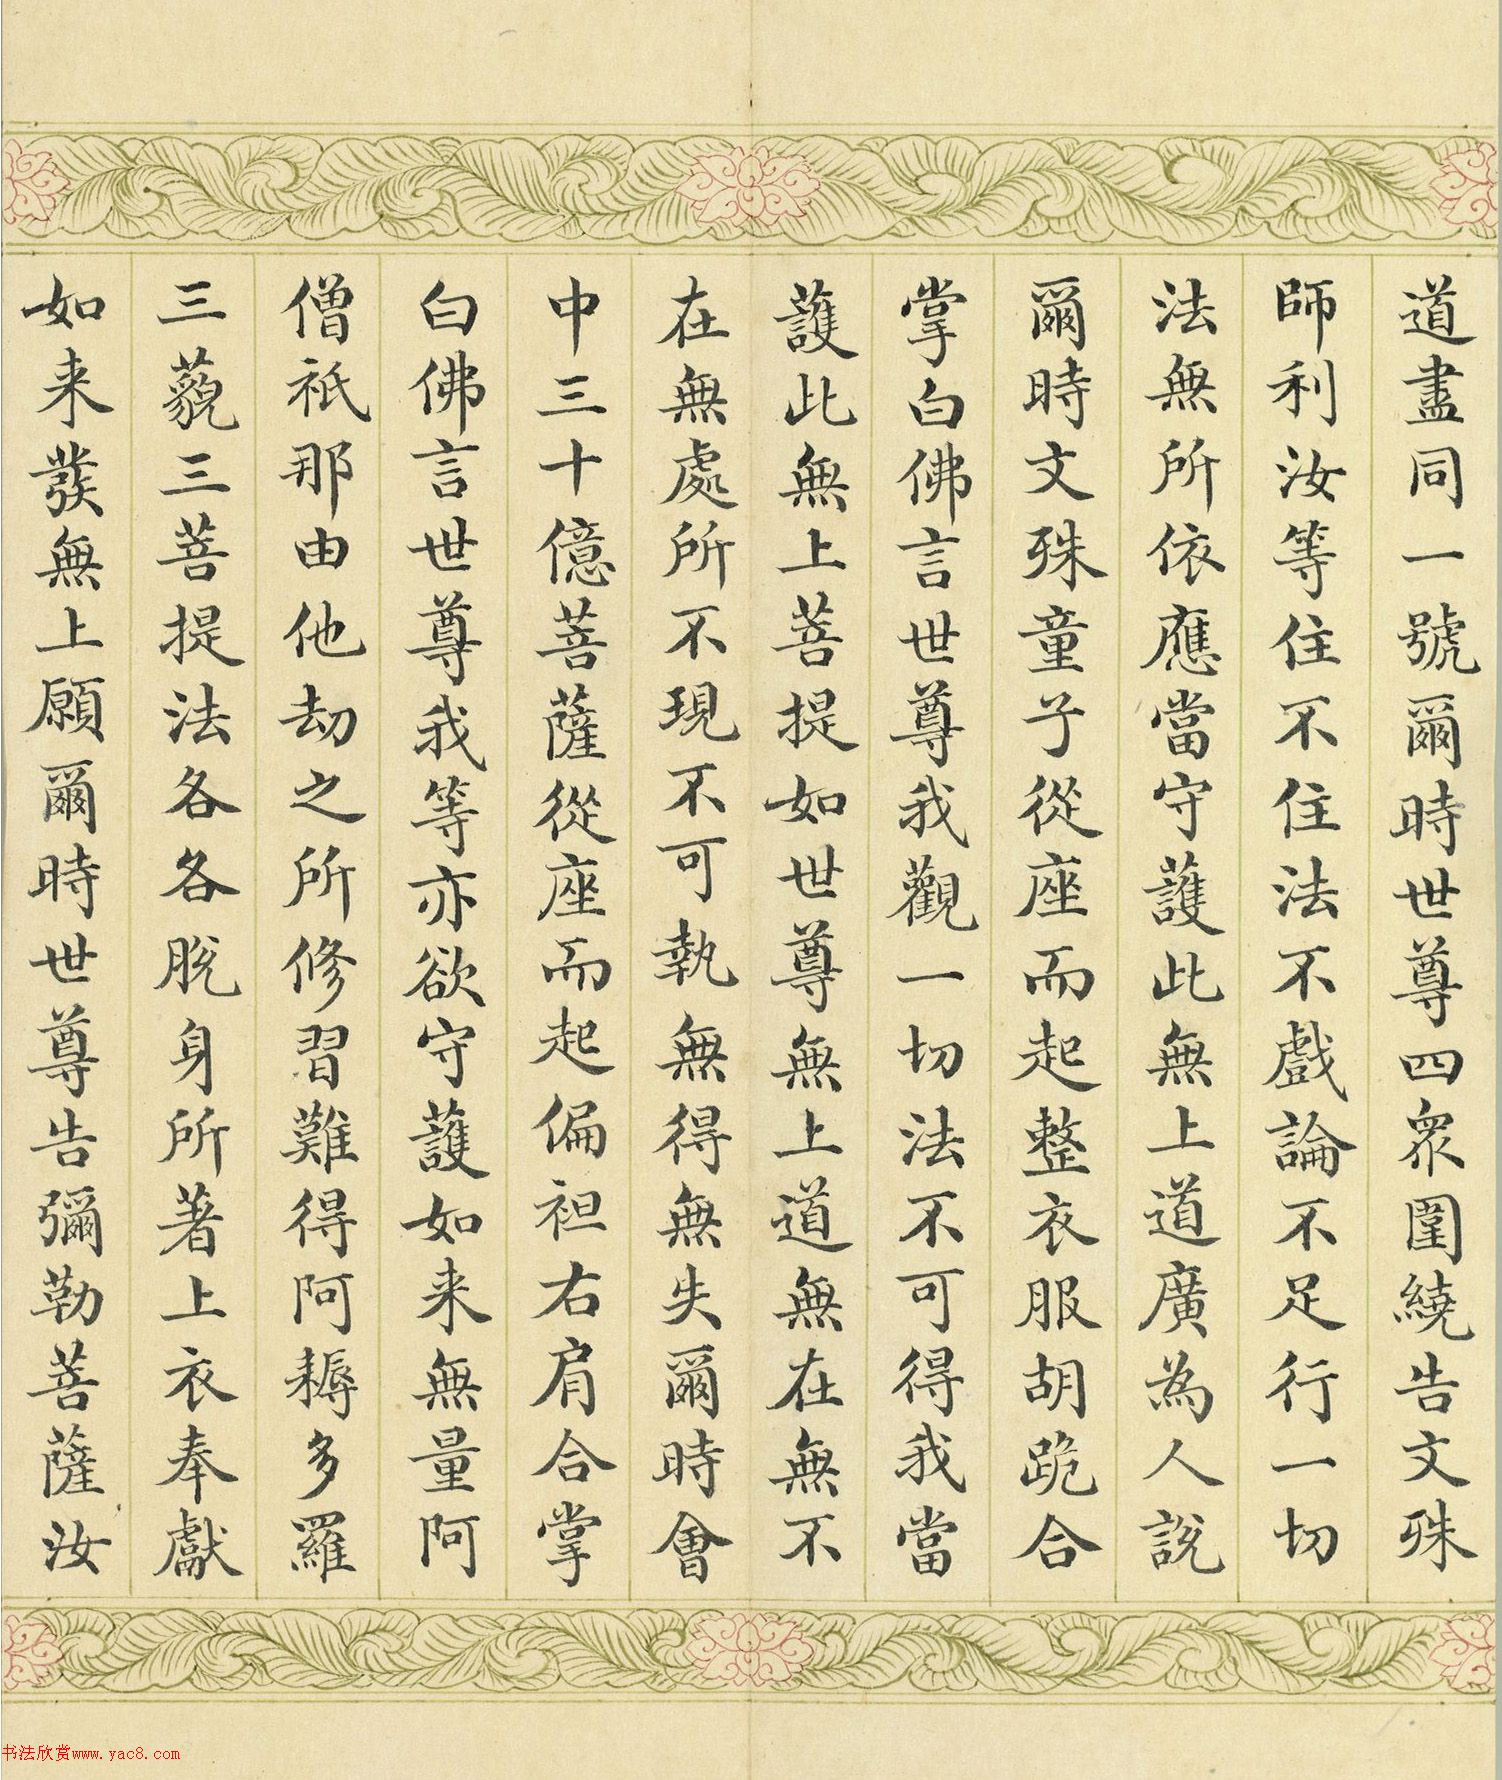 道盡同一號爾時世尊四眾圍繞告文殊
師利汝等住不住法不戲論不足行一切
法無所依應當守護此無上道廣為人說
爾時文殊童子從座而起整衣服胡跪合
掌白佛言世尊我觀一切法不可得我當
護此無上菩提如世尊無上道無在無不
在無處所不現不可執無得無失爾時會
中三十億菩薩從座而起偏袒右肩合掌
白佛言世尊我等亦欲守護如来無量阿
僧祇那由他劫之所修習難得阿耨多羅
三藐三菩提法各各脫身所著上衣奉獻
如来發無上願爾時世尊告彌勒菩薩汝
书法欣赏www.yac8.com